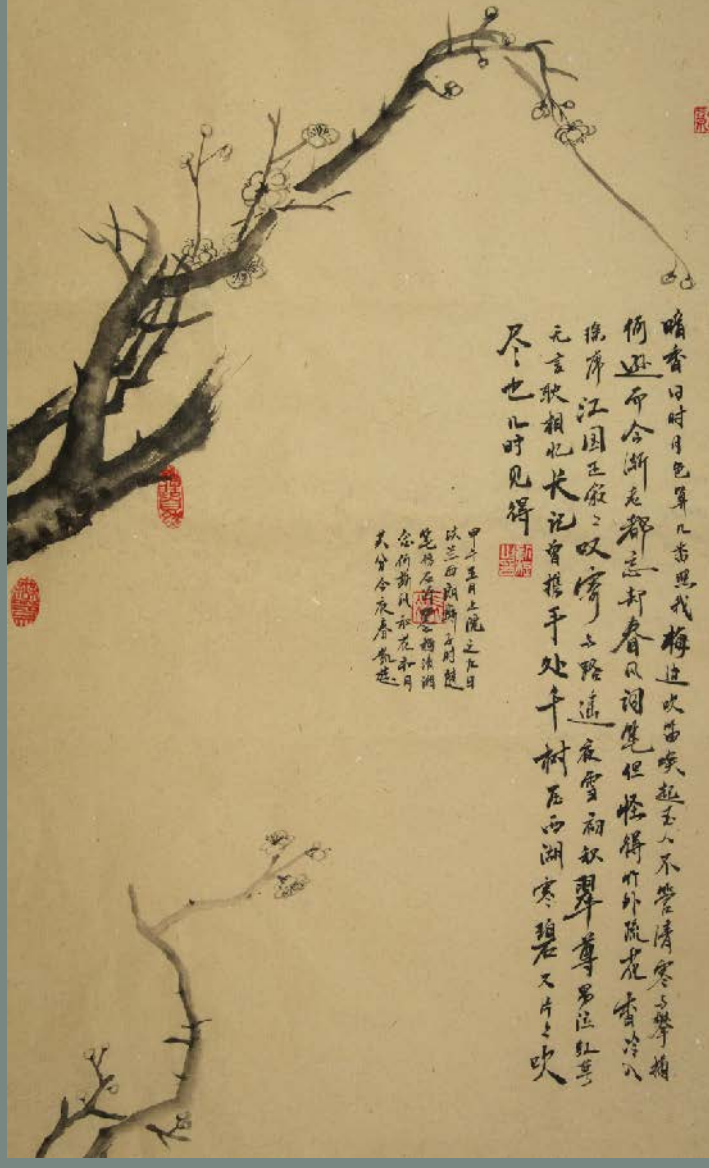 暗香旧时月色算几番照我梅边吹笛唤起玉人不管清寒与攀摘
何逊而今渐老都忘却春风词笔但怪得竹外疏花香冷入
瑶席江国正寂々叹寄与路遥夜雪初积翠尊易泣红萼
无言耿相忆长记曾携手处千树压西湖寒碧又片々吹
尽也几时见得
甲午五月上浣之九日
兰西阁子时
笔梅
念何风和花和月
天分今夜春